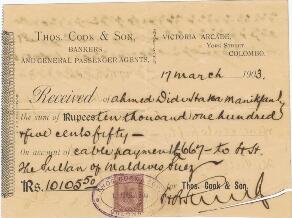 THOS. COOK & SON,
BANKERS
AND GENERAL PASSENGER AGENTS,
VICTORIA ARCADE,
YORK STREET
COLOMBO.
17 March 1903.
Received of Ahmed Didi
the sum of Rupees Ten thousand one hundred
& five cents fifty —
on account of cable payment £667 - to H.H.
The Sultan of Maldives Suez
Rs. 10105.50 for Thos. Cook & Son.